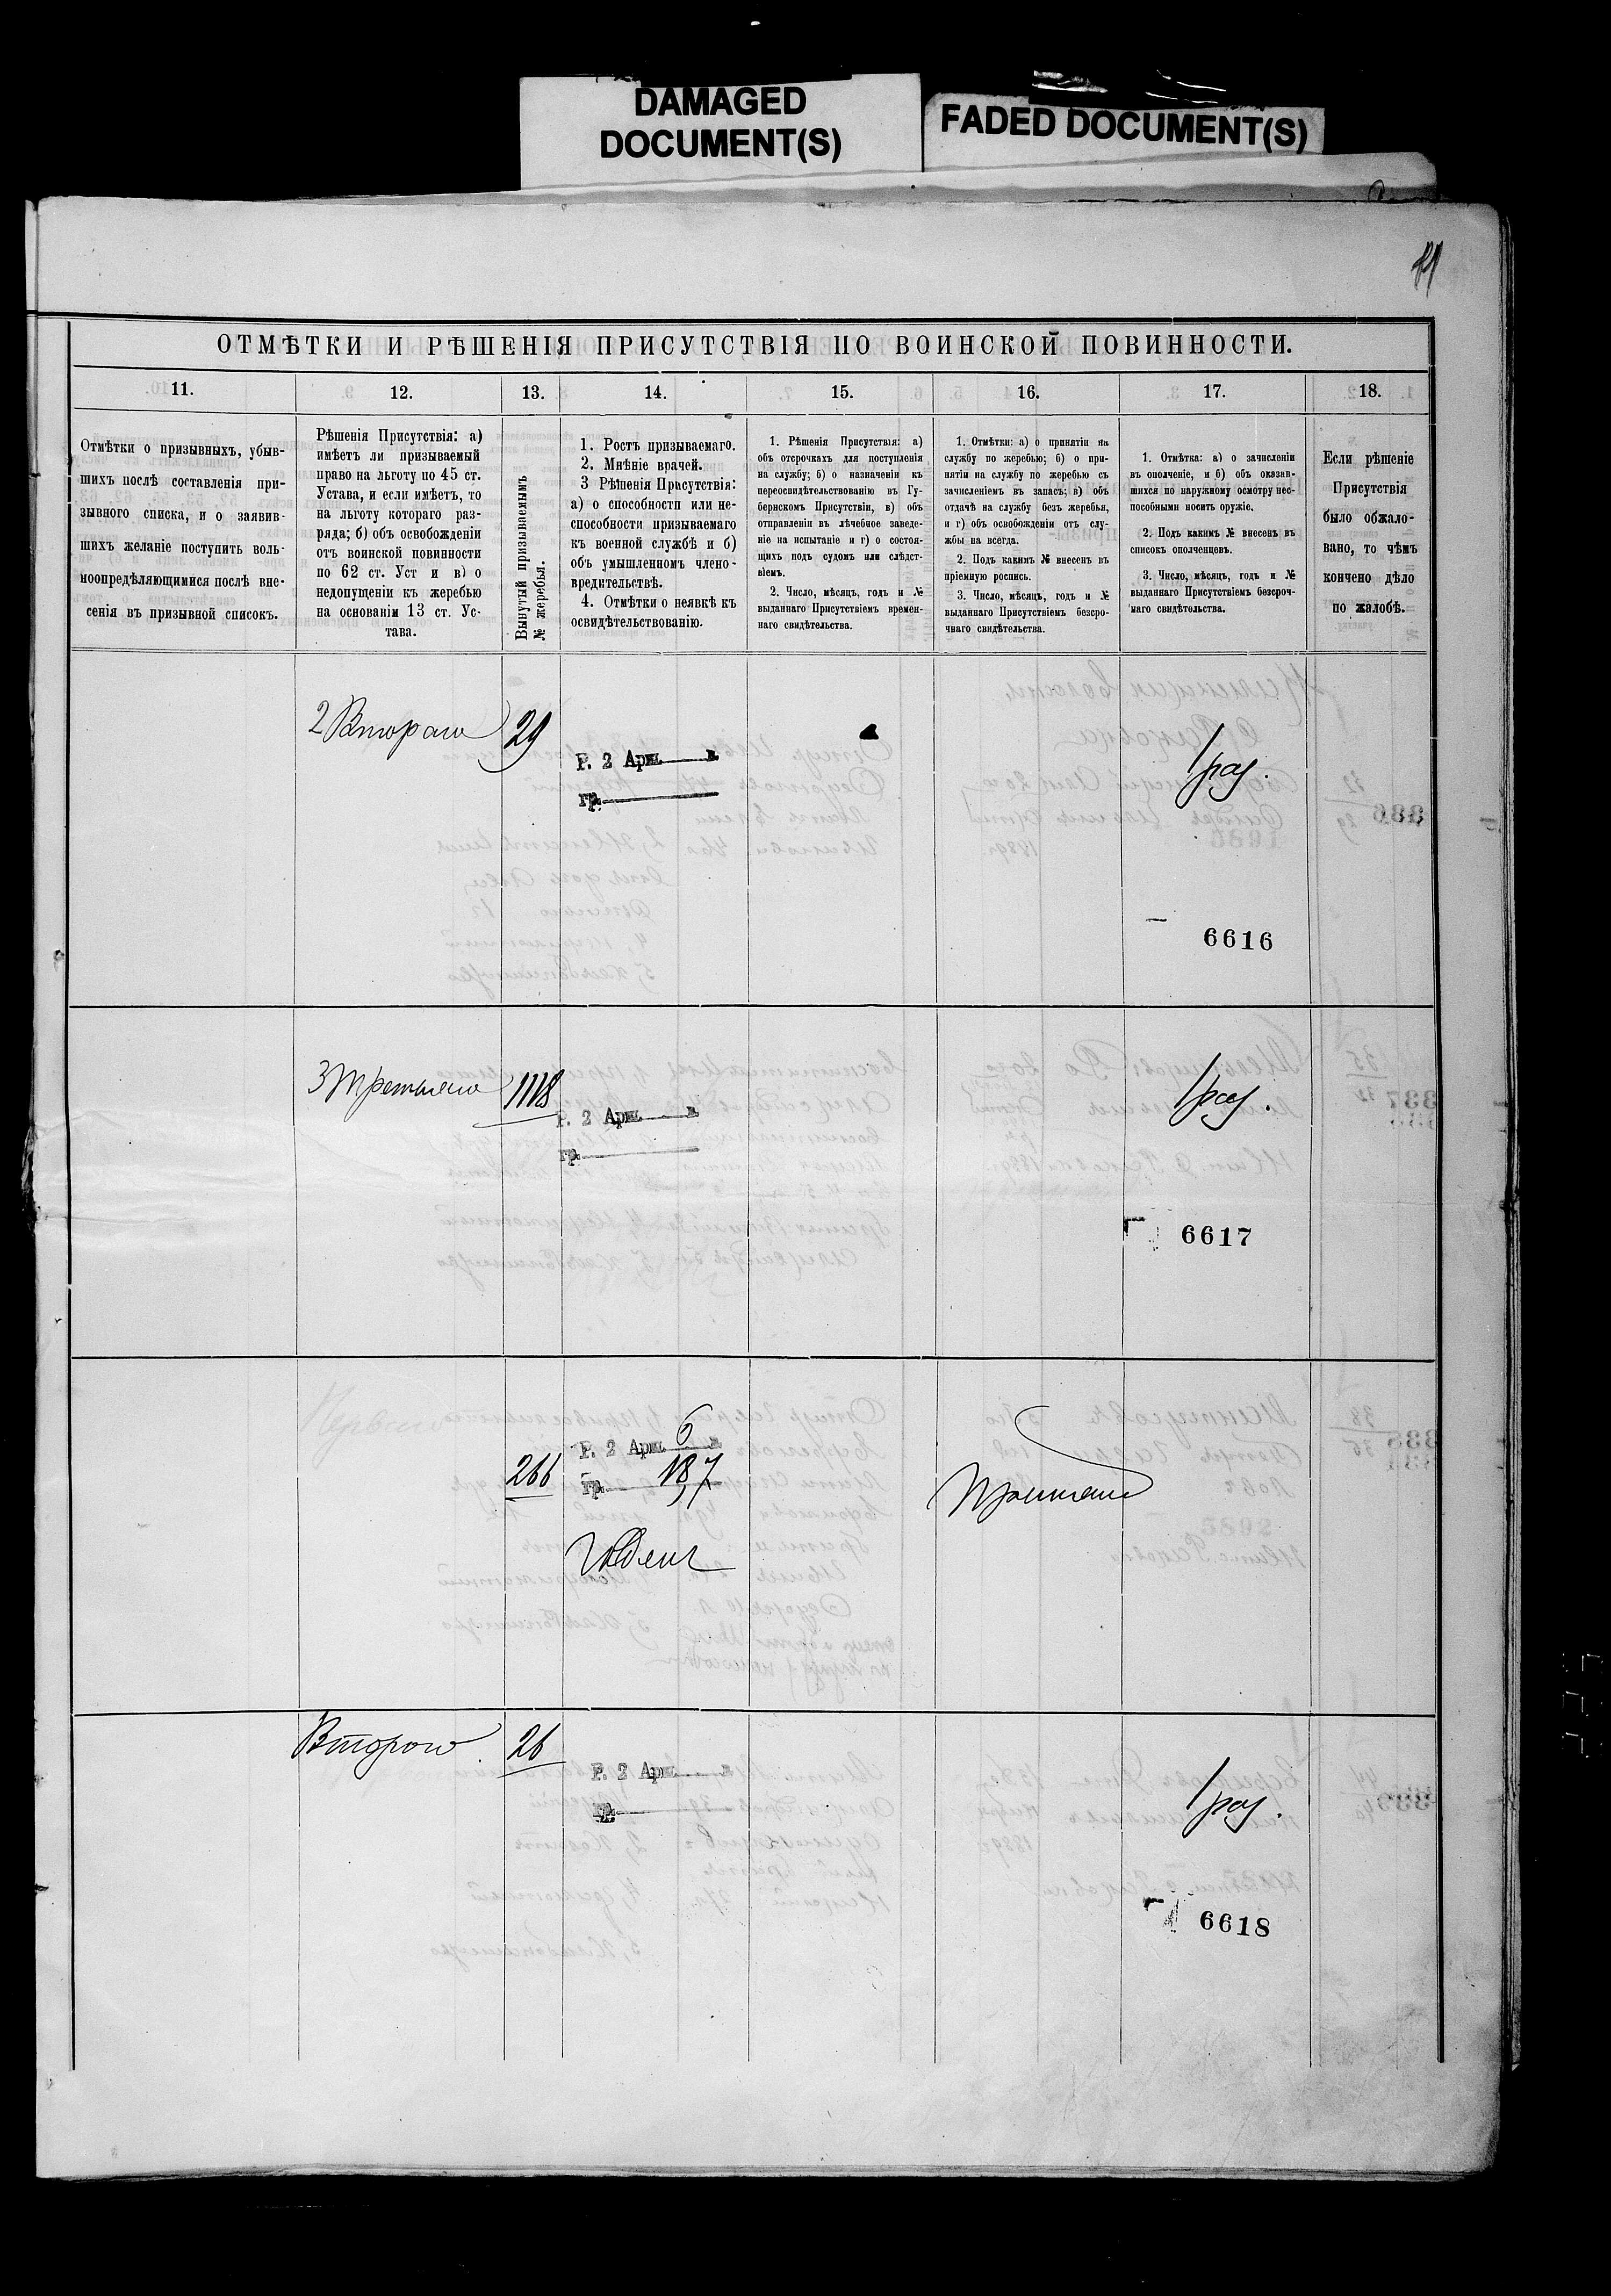 DAMAGED
DOCUMENT(S)
FADED DOCUMENT(S)
ОТМѢТКИ И РѢШЕНІЯ ПРИСУТСТВІЯ ПО ВОИНСКОЙ ПОВИННОСТИ.
11.
12.
13.
14.
15.
16.
17.
18.
Отмѣтки о призывныхъ, убыв-
шихъ послѣ составленія при-
зывного списка, и о заявив-
шихъ желаніе поступить воль-
ноопредѣляющимися послѣ вне-
сенія въ призывной списокъ.
Рѣшенія Присутствія: а)
имѣетъ ли призываемый
право на льготу по 45 ст.
Устава, и если имѣетъ, то
на льготу котораго раз-
ряда; б) объ освобожденіи
отъ воинской повинности
по 62 ст. Уст и в) о
недопущеніи къ жеребью
на основаніи 13 ст. Ус-
тава.
Вынутый призываемымъ
№ жеребья.
1. Ростъ призываемаго.
2. Мнѣніе врачей.
3 Рѣшенія Присутствія:
а) о способности или не-
способности призываемаго
къ военной службѣ и б)
объ умышленномъ члено-
вредительствѣ.
4. Отмѣтки о неявкѣ къ
освидѣтельствованію.
1. Рѣшенія Присутствія: а)
объ отсрочкахъ для поступленія
на службу; б) о назначеніи къ
переосвидѣтельствованію въ Гу-
бернскомъ Присутствіи, в) объ
отправленіи въ лѣчебное заведе-
ніе на испытаніе и г) о состоя-
щихъ подъ судомъ или слѣдст-
віемъ.
2. Число, мѣсяцъ, годъ и №
выданнаго Присутствіемъ времен-
наго свидѣтельства.
1. Отмѣтки: а) о принятіи на
службу по жеребью; б) о при-
нятіи на службу по жеребью съ
зачисленіемъ въ запасъ; в) объ
отдачѣ на службу безъ жеребья,
и г) объ освобожденіи отъ слу-
жбы на всегда.
2. Подъ какимъ № внесенъ въ
пріемную роспись.
3. Число, мѣсяцъ, годъ и №
выданнаго Присутствіемъ безсро-
чнаго свидѣтельства.
1. Отмѣтка: а) о зачисленіи
въ ополченіе, и б) объ оказав-
шихся по наружному осмотру нес-
пособными носить оружіе.
2. Подъ какимъ № внесенъ въ
списокъ ополченцевъ.
3. Число, мѣсяцъ, годъ и №
выданнаго Присутствіемъ безсроч-
наго свидѣтельства.
Если рѣшеніе
Присутствія
было обжало-
вано, то чѣмъ
кончено дѣло
по жалобѣ.
2 Втораго
29
Р. 2 Арш. в.
гр.
1 раз.
6616
3 Третьяго
1118
Р. 2 Арш. в.
гр.
1 раз.
6617
266
Р. 2 Арш. 6 в.
гр.
Годенъ
Принятъ
Второго
26
Р. 2 Арш. в.
гр.
1 раз.
6618